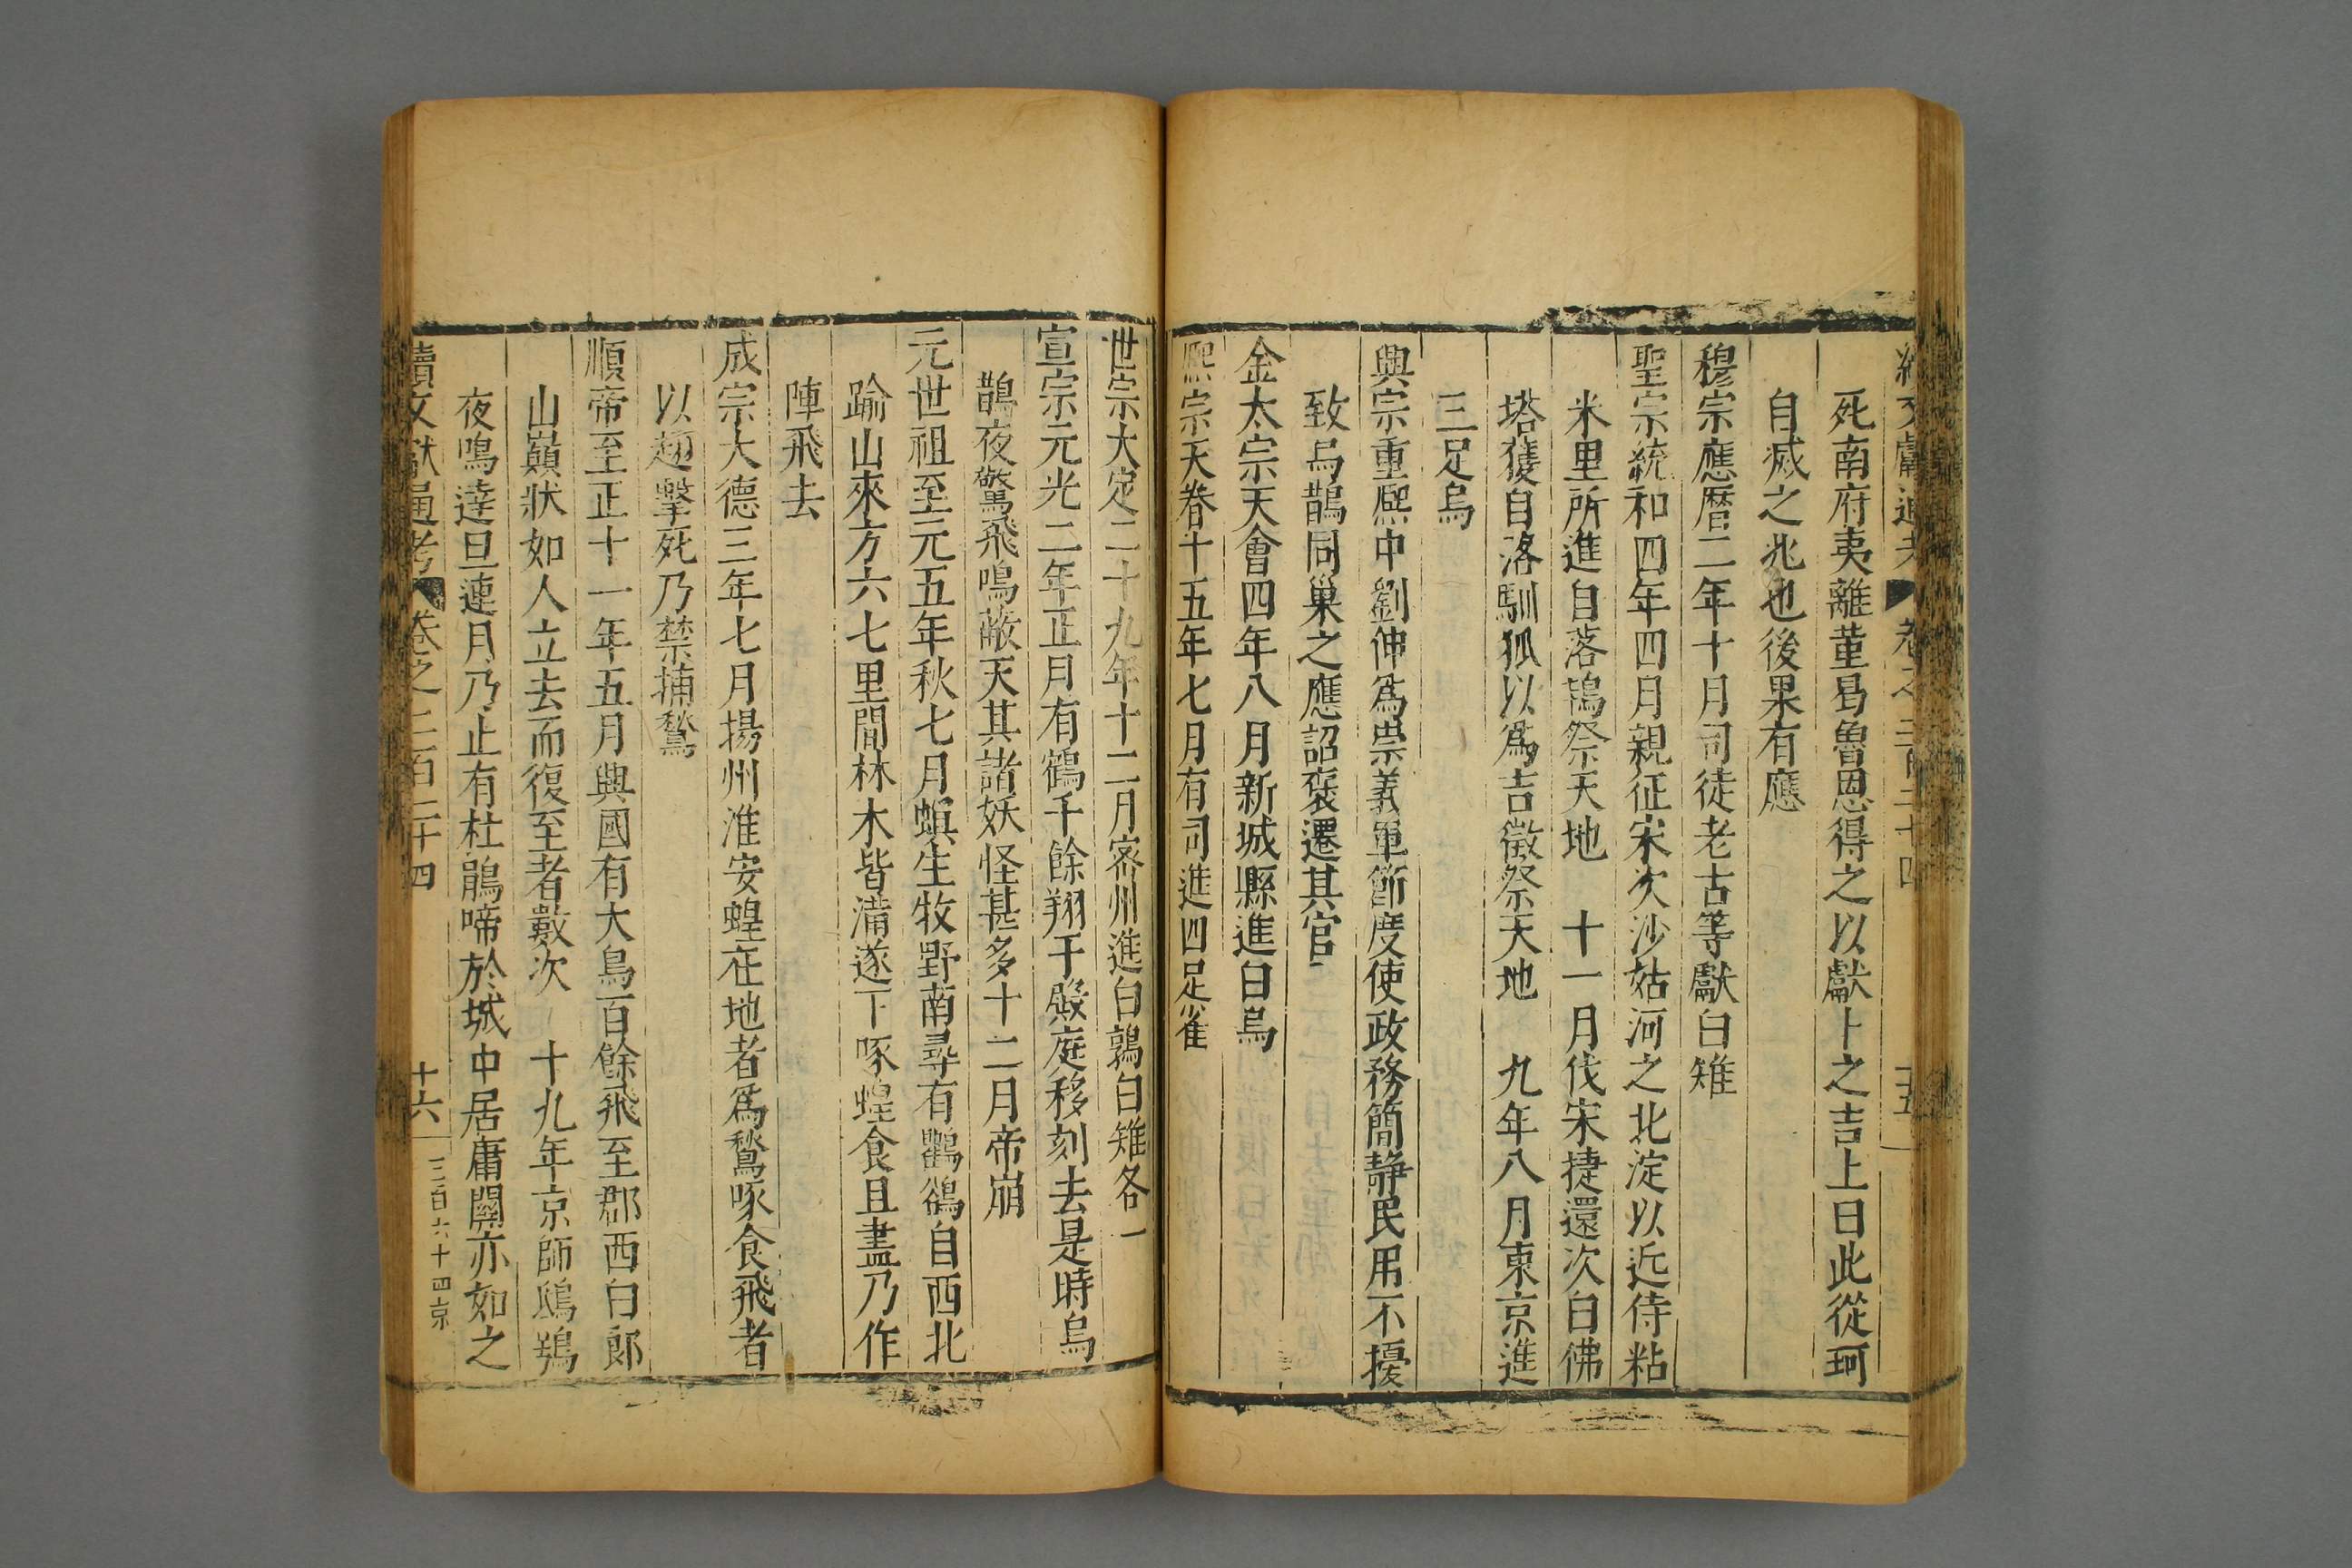 續文獻通考 卷之二百二十四 十五
死南府夷離菫曷魯恩得之以獻卜之吉上曰此從珂
自滅之兆也後果有應
穆宗應曆二年十月司徒老古等獻白雉
聖宗統和四年四月親征宋次沙姑河之北淀以近侍粘
米里所進自落鴇祭天地 十一月伐宋捷還次白佛
塔獲自落馴狐以爲吉徵祭天地 九年八月東京進
三足烏
興宗重熙中劉伸爲崇義軍節度使政務簡靜民用不擾
致烏鵲同巢之應詔褒遷其官
金太宗天會四年八月新城縣進白烏
熙宗天眷十五年七月有司進四足雀
世宗大定二十九年十二月密州進白鶉白雉各一
宣宗元光二年正月有鶴千餘翔于殿庭移刻去是時烏
鵲夜驚飛鳴蔽天其諸妖怪甚多十二月帝崩
元世祖至元五年秋七月蝗生牧野南尋有鸜鵒自西北
踰山來方六七里間林木皆滿遂下啄蝗食且盡乃作
陣飛去
成宗大德三年七月揚州淮安蝗在地者爲鶖啄食飛者
以翅擊死乃禁捕鶖
順帝至正十一年五月興國有大鳥百餘飛至郡西白郞
山巔狀如人立去而復至者數次 十九年京師鴟鴞
夜鳴達旦連月乃止有杜鵑啼於城中居庸關亦如之
續文獻通考 卷之二百二十四 十六 三百六十四 京